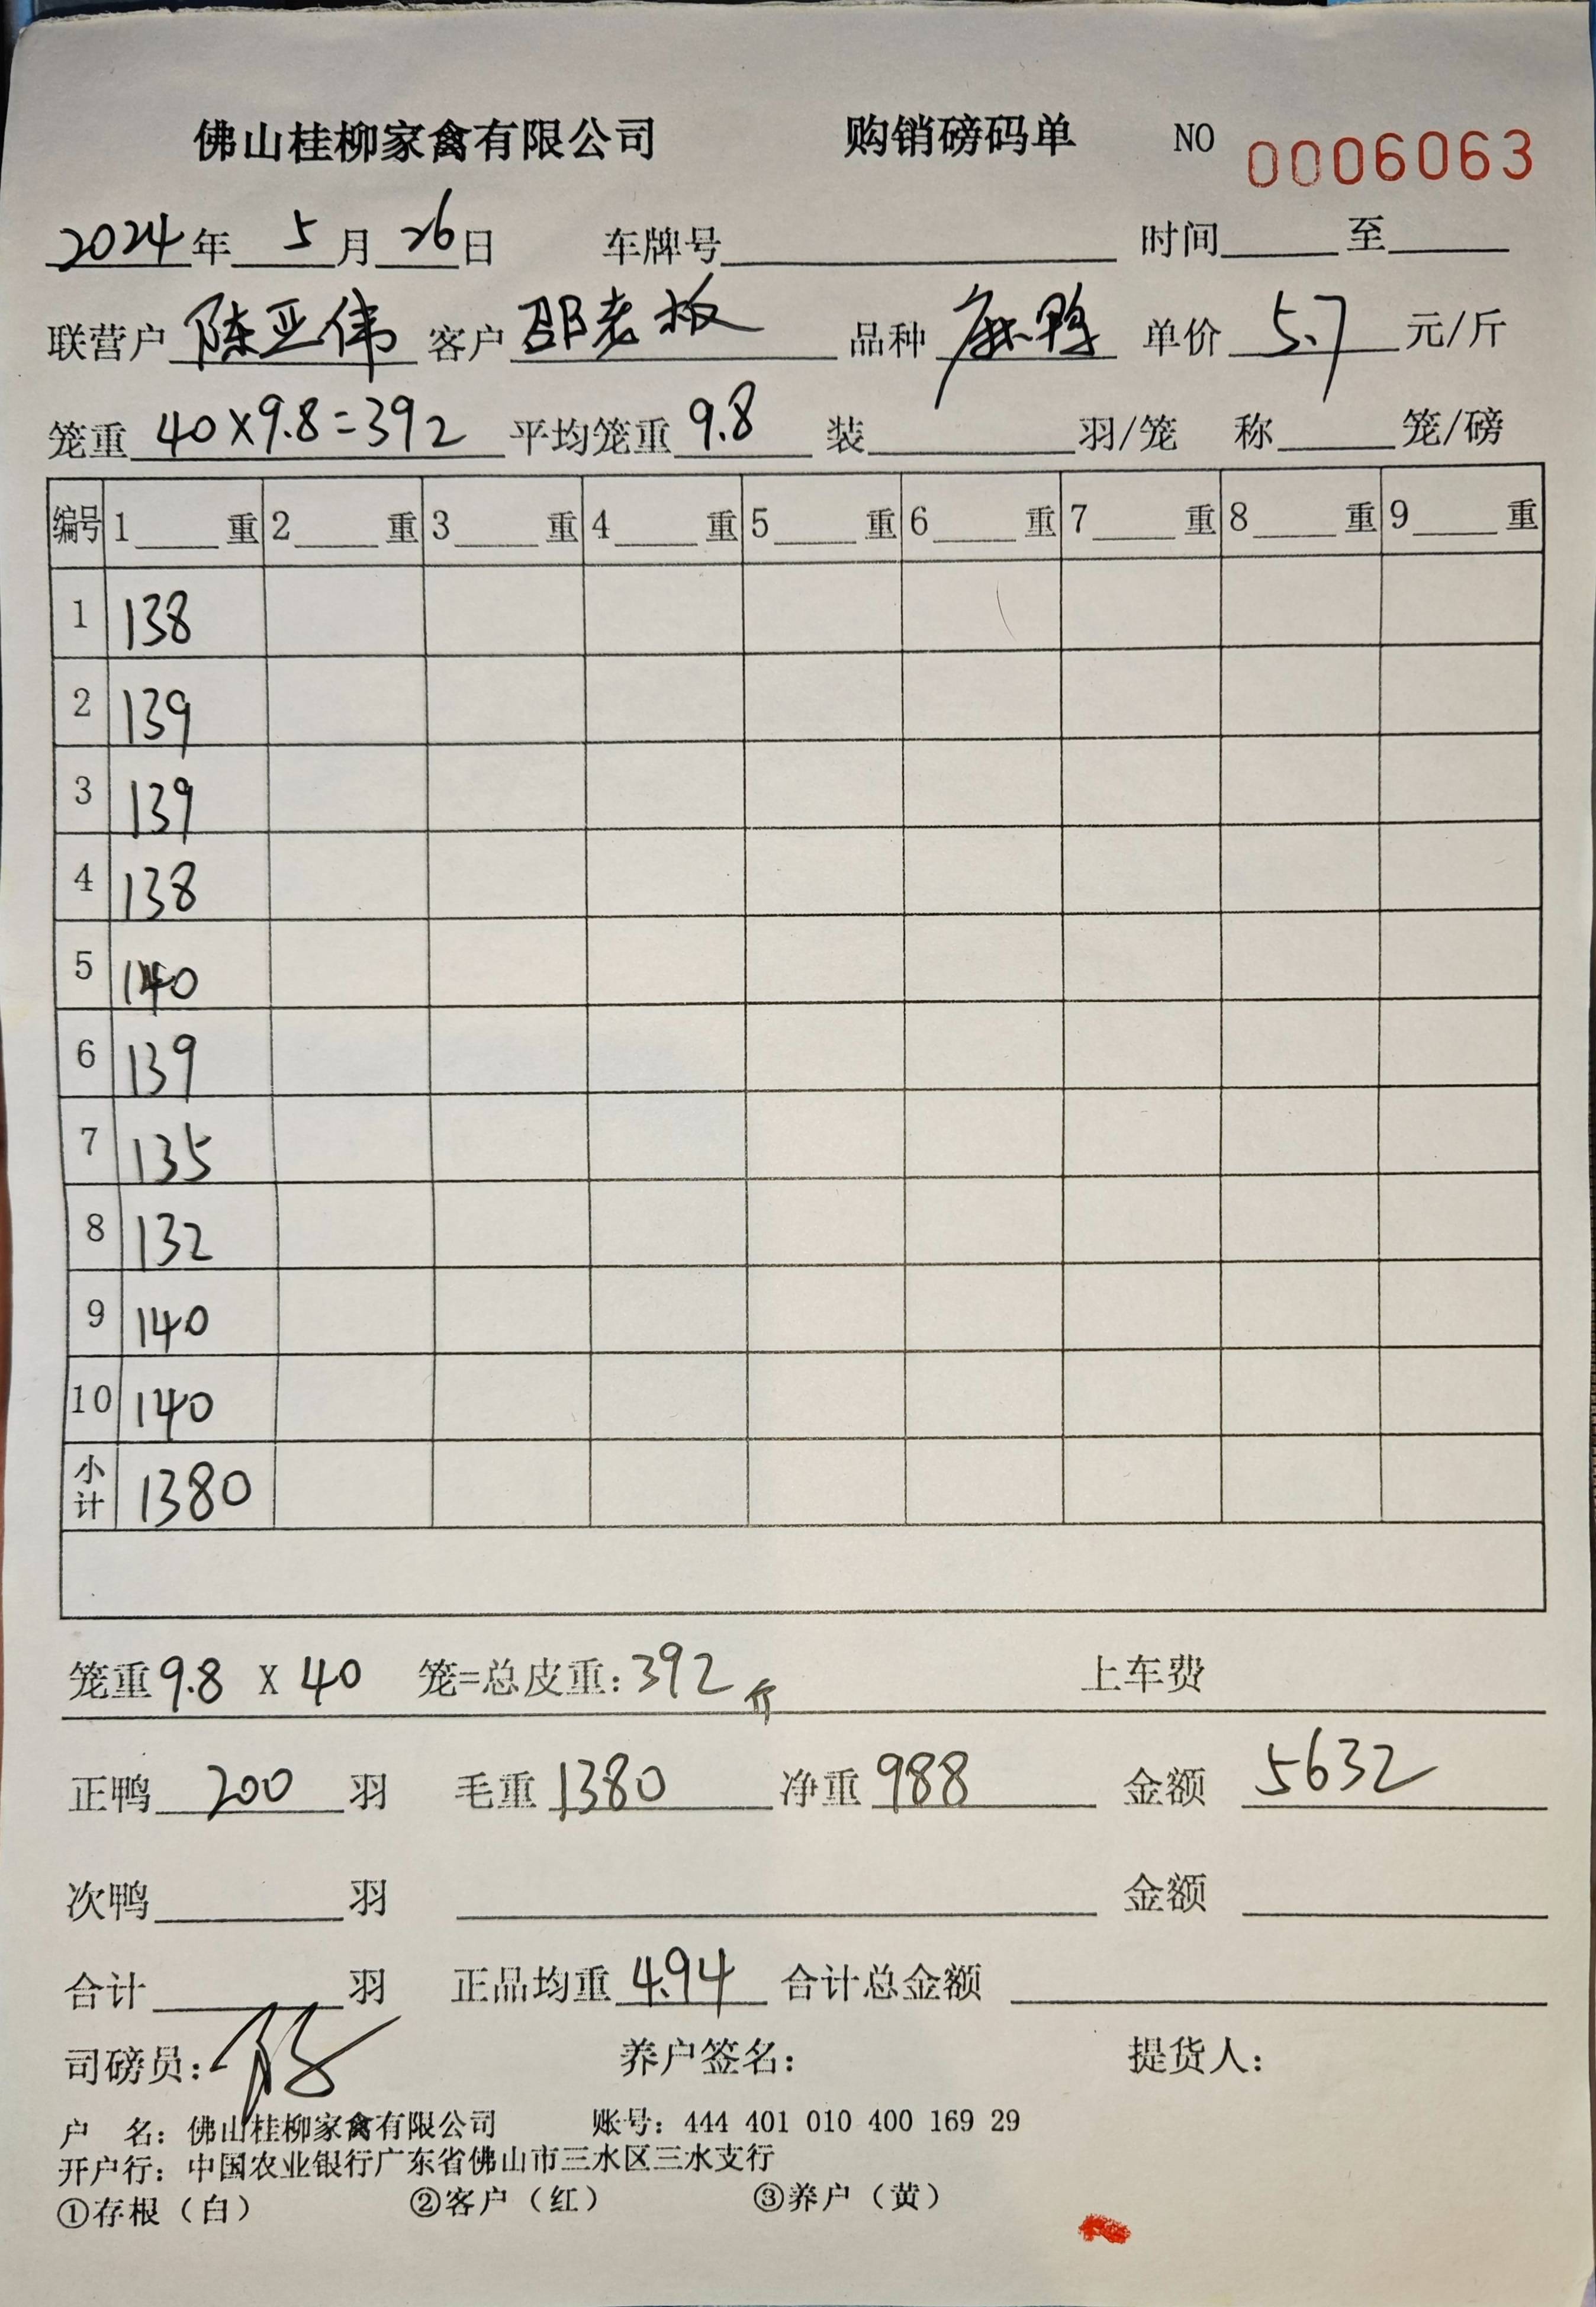 佛山桂柳家禽有限公司 购销磅码单 NO 0006063
2024年 5月 26日 车牌号 时间 至
联营户 陈亚伟 客户 邵老板 品种 麻鸭 单价 5.7 元/斤
笼重 40×9.8=392 平均笼重 9.8 装 羽/笼 称 笼/磅
编号 1 重 2 重 3 重 4 重 5 重 6 重 7 重 8 重 9 重
1 138
2 139
3 139
4 138
5 140
6 139
7 135
8 132
9 140
10 140
小计 1380
笼重 9.8 X 40 笼=总皮重: 392 斤 上车费
正鸭 200 羽 毛重 1380 净重 988 金额 5632
次鸭 羽 金额
合计 羽 正品均重 4.94 合计总金额
司磅员: 养户签名: 提货人:
户 名: 佛山桂柳家禽有限公司 账号: 444 401 010 400 169 29
开户行: 中国农业银行广东省佛山市三水区三水支行
①存根（白） ②客户（红） ③养户（黄）